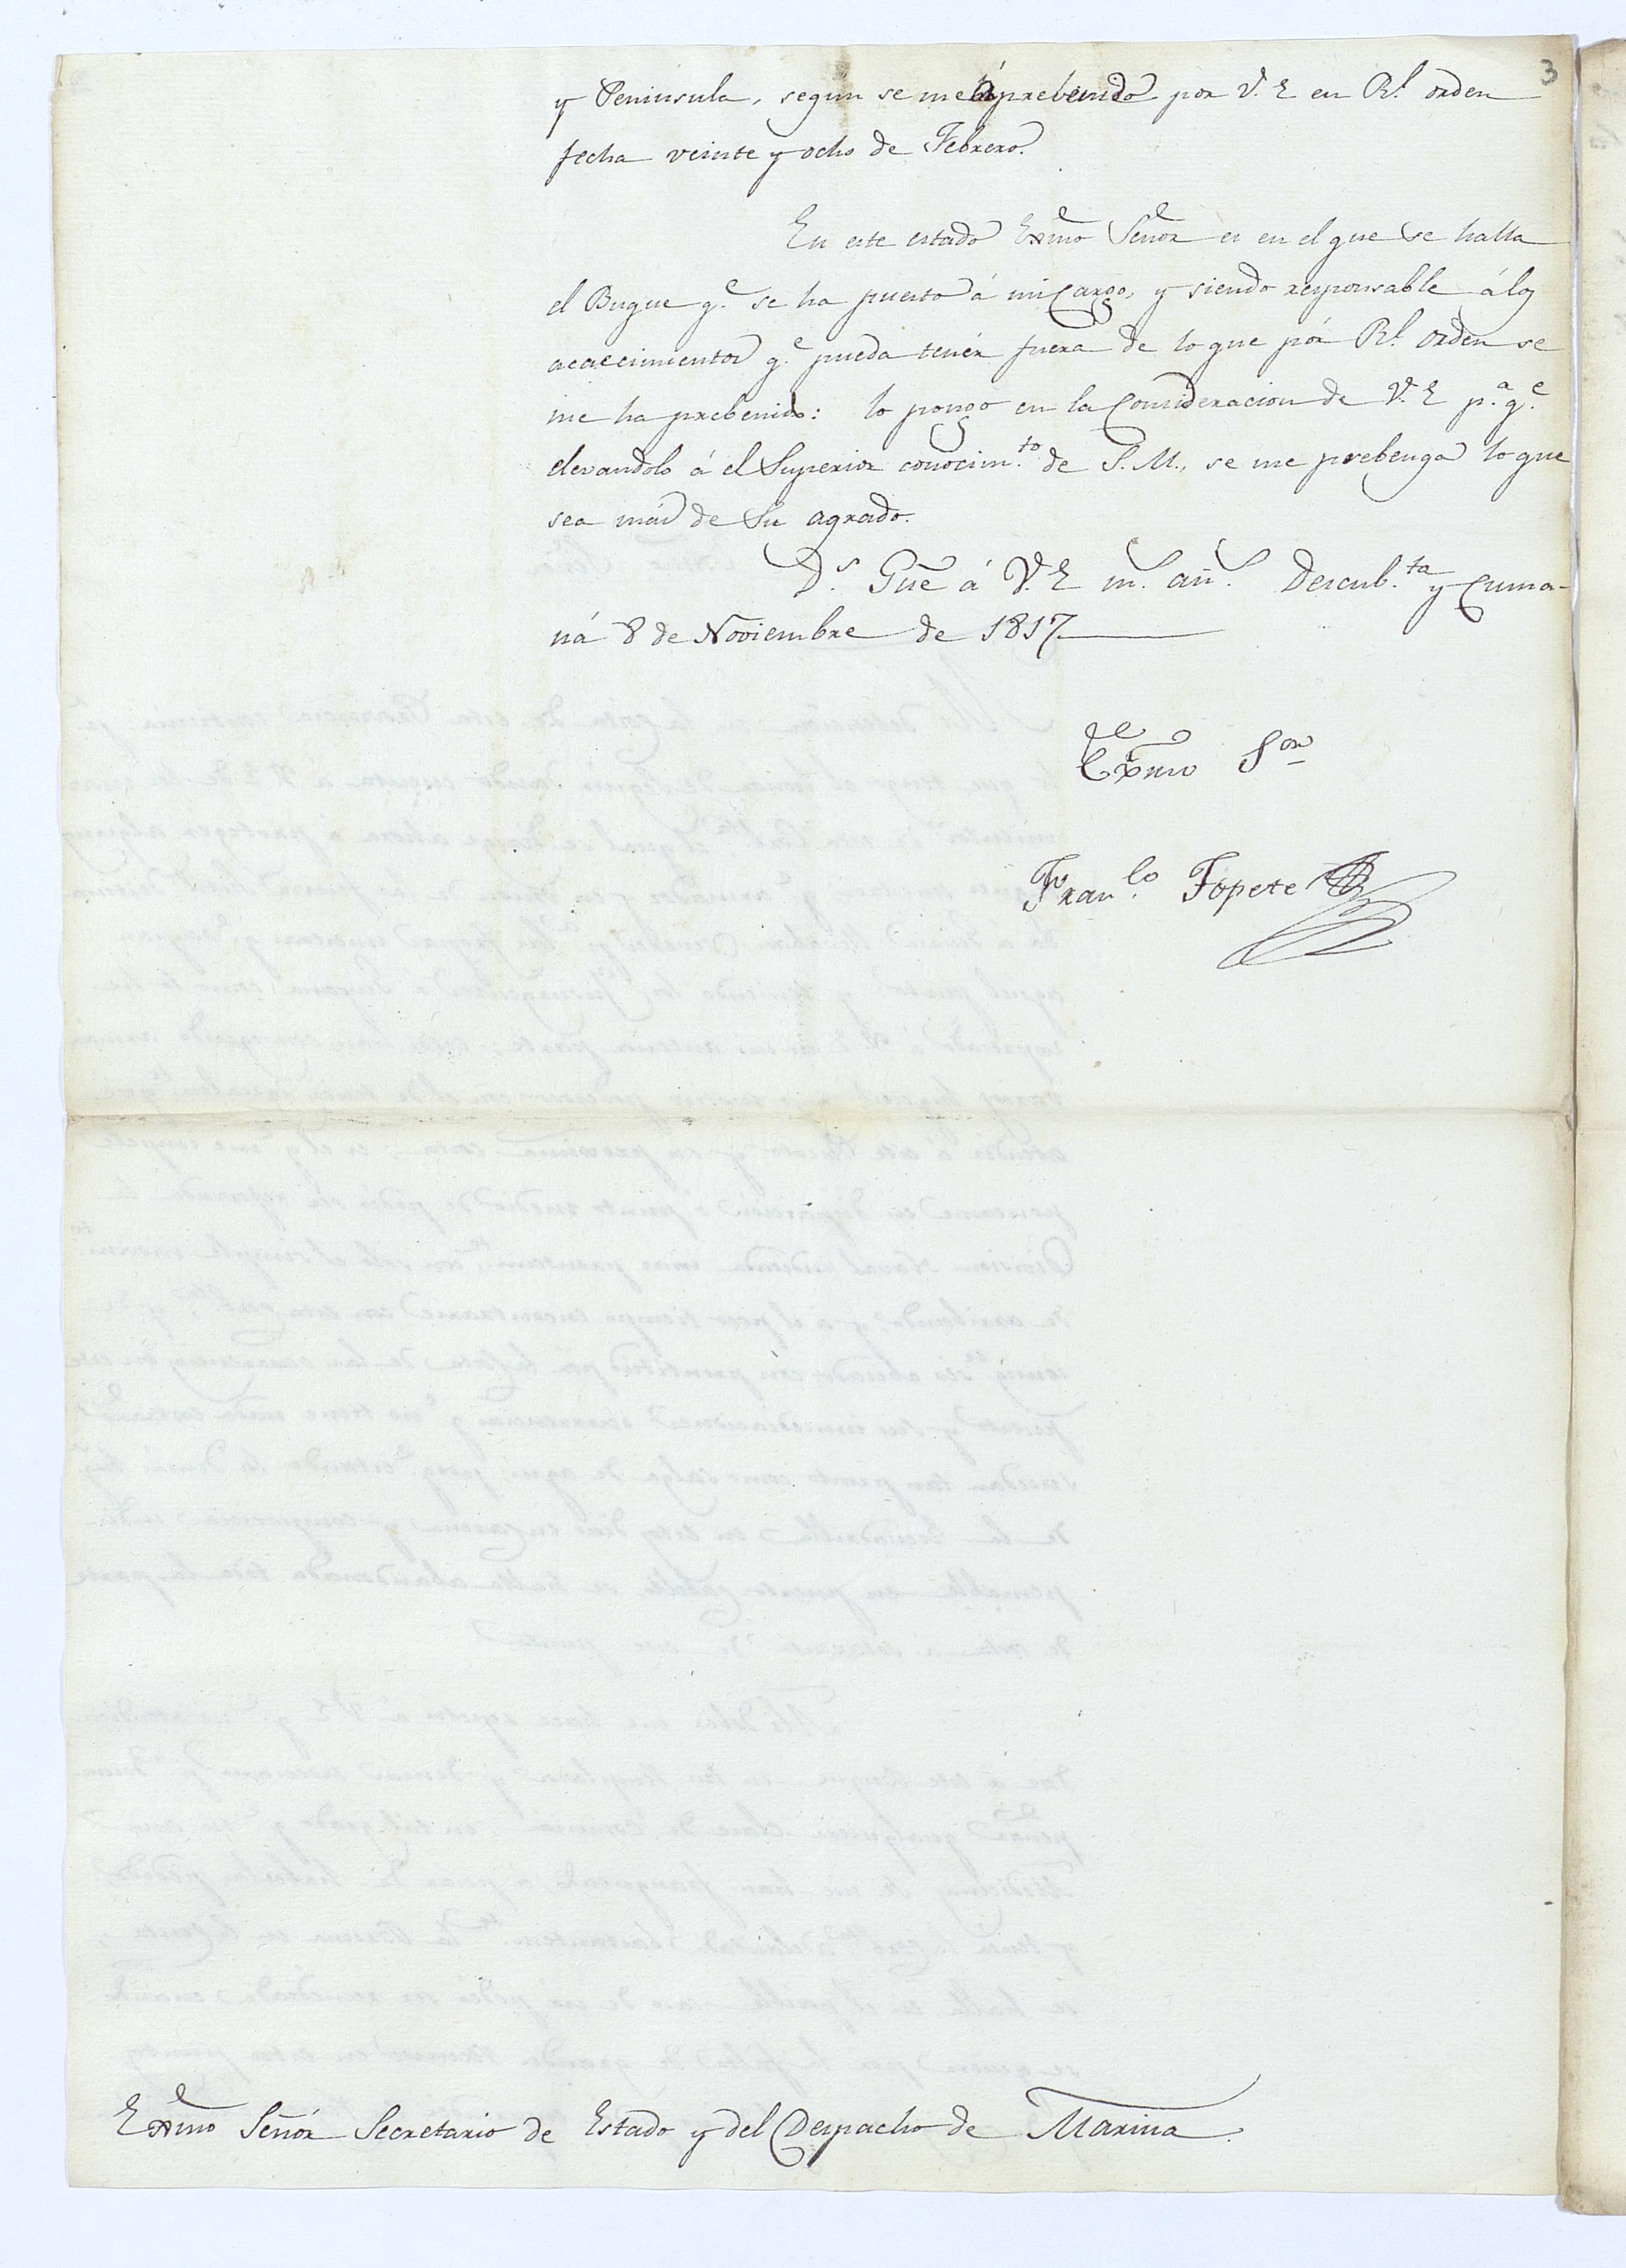 3
y Peninsula, segun se me há prebenido por V. E en Rl. orden
fecha veinte y ocho de Febrero.
En este estado Exmo Señor es en el que se halla
el Buque q.e se ha puesto á mi Cargo, y siendo responsable á los
acaecimientos q.e pueda tenér fuera de lo que pór Rl. orden se
me ha prebenido: lo pongo en la Consideracion de V. E p.a q.e
elevandolo á el Superior conocim.to de S. M., se me prebenga lo que
sea más de Su agrado.
D.s Gue á V. E m.s añ.s Descub.ta y Cuma-
ná 8 de Noviembre de 1817
Exmo S.or
Fran.co Topete
Exmo Señór Secretario de Estado y del Despacho de Marina.